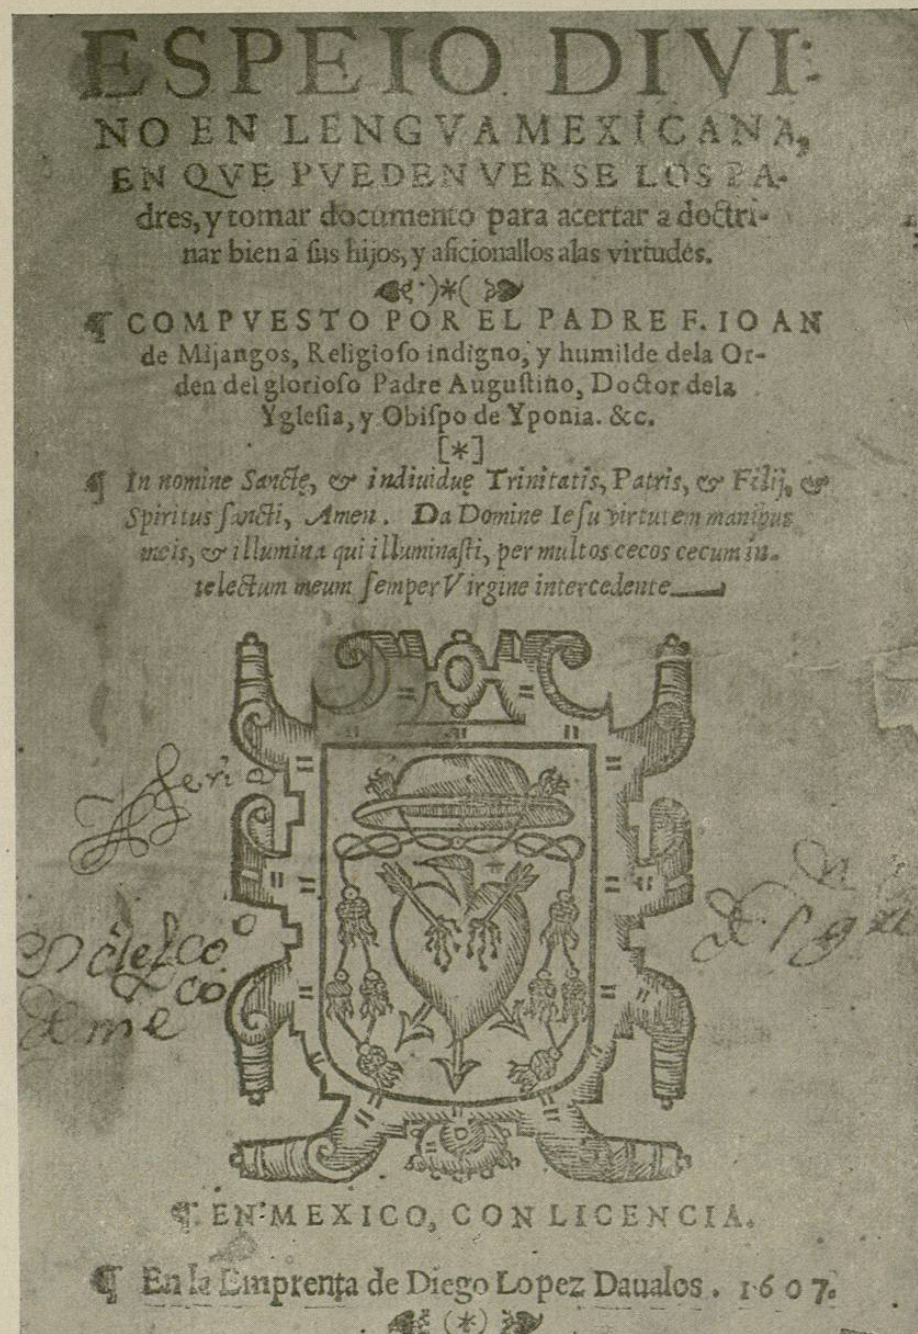 ESPEIO DIVI-
NO EN LENGVA MEXICANA,
EN QVE PVEDEN VERSE LOS PA-
dres, y tomar documento para acertar a doctri-
nar bien a sus hijos, y aficionallos alas virtudes.
¶ COMPVESTO POR EL PADRE F. IOAN
de Mijangos, Religioſo indigno, y humilde dela Or-
den del glorioſo Padre Auguſtino, Doctor dela
Ygleſia, y Obiſpo de Yponia. &c.
[*]
¶ In nomine Sanctę, & indiuiduę Trinitatis, Patris, & Filij, &
Spiritus ſancti, Amen. Da Domine Ieſu virtutem manibus
meis, & illumina qui illuminaſti, per multos cecos cecum in-
telectum meum ſemper Virgine intercedente
¶ EN MEXICO, CON LICENCIA.
¶ En la Emprenta de Diego Lopez Daualos. 1607.
(*)